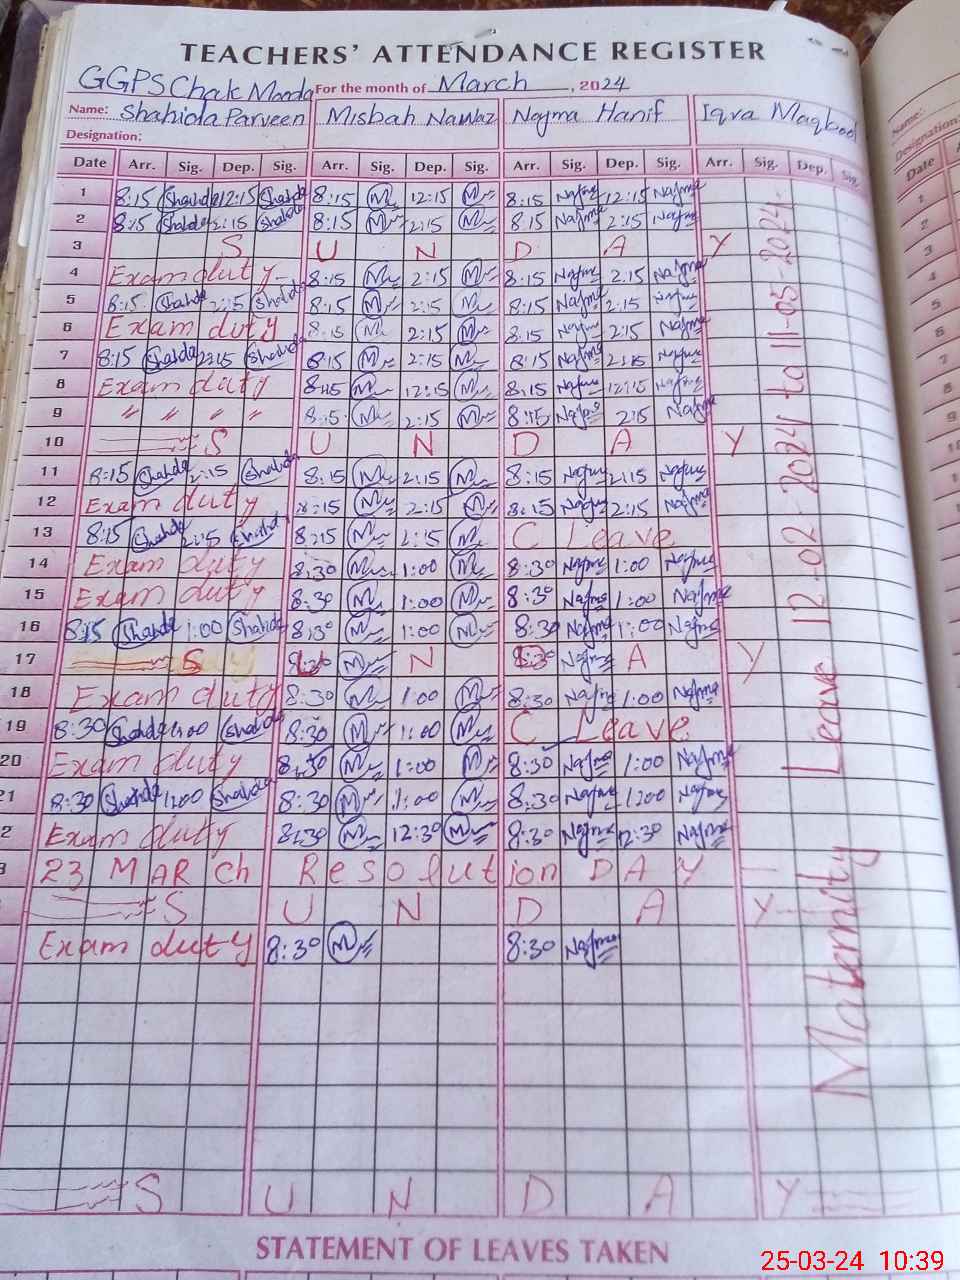 TEACHERS' ATTENDANCE REGISTER
GGPS Chak Manda For the month of March, 2024
Name: Shahida Parveen Misbah Nawaz Najma Hanif Iqra Maqbool
Designation:
Date Arr. Sig. Dep. Sig. Arr. Sig. Dep. Sig. Arr. Sig. Dep. Sig. Arr. Sig. Dep. Sig.
1 8:15 Shahida 12:15 Shahida 8:15 M 12:15 M 8:15 Najma 12:15 Najma
2 8:15 Shahida 2:15 Shahida 8:15 M 2:15 M 8:15 Najma 2:15 Najma
3 S U N D A Y
4 Exam duty 8:15 M 2:15 M 8:15 Najma 2:15 Najma
5 8:15 Shahida 2:15 Shahida 8:15 M 2:15 M 8:15 Najma 2:15 Najma
6 Exam duty 8:15 M 2:15 M 8:15 Najma 2:15 Najma
7 8:15 Shahida 2:15 Shahida 8:15 M 2:15 M 8:15 Najma 2:15 Najma
8 Exam duty 8:15 M 12:15 M 8:15 Najma 12:15 Najma
9 " " " " 8:15 M 2:15 M 8:15 Najma 2:15 Najma
10 S U N D A Y
11 8:15 Shahida 2:15 Shahida 8:15 M 2:15 M 8:15 Najma 2:15 Najma
12 Exam duty 8:15 M 2:15 M 8:15 Najma 2:15 Najma
13 8:15 Shahida 2:15 Shahida 8:15 M 2:15 M C Leave
14 Exam duty 8:30 M 1:00 M 8:30 Najma 1:00 Najma
15 Exam duty 8:30 M 1:00 M 8:30 Najma 1:00 Najma
16 8:15 Shahida 1:00 Shahida 8:30 M 1:00 M 8:30 Najma 1:00 Najma
17 S M N Najma A Y
18 Exam duty 8:30 M 1:00 M 8:30 Najma 1:00 Najma
19 8:30 Shahida 1:00 Shahida 8:30 M 1:00 M C Leave
20 Exam duty 8:30 M 1:00 M 8:30 Najma 1:00 Najma
21 8:30 Shahida 1:00 Shahida 8:30 M 1:00 M 8:30 Najma 1:00 Najma
2 Exam duty 8:30 M 12:30 M 8:30 Najma 12:30 Najma
3 23 MARch Resolution DAY
S U N D A Y
Exam duty 8:30 M 8:30 Najma
S U N D A Y
Maternity Leave 12-02-2024 to 11-05-2024
STATEMENT OF LEAVES TAKEN
25-03-24 10:39
Name:
Designation:
Date
1
2
3
4
5
6
7
8
9
10